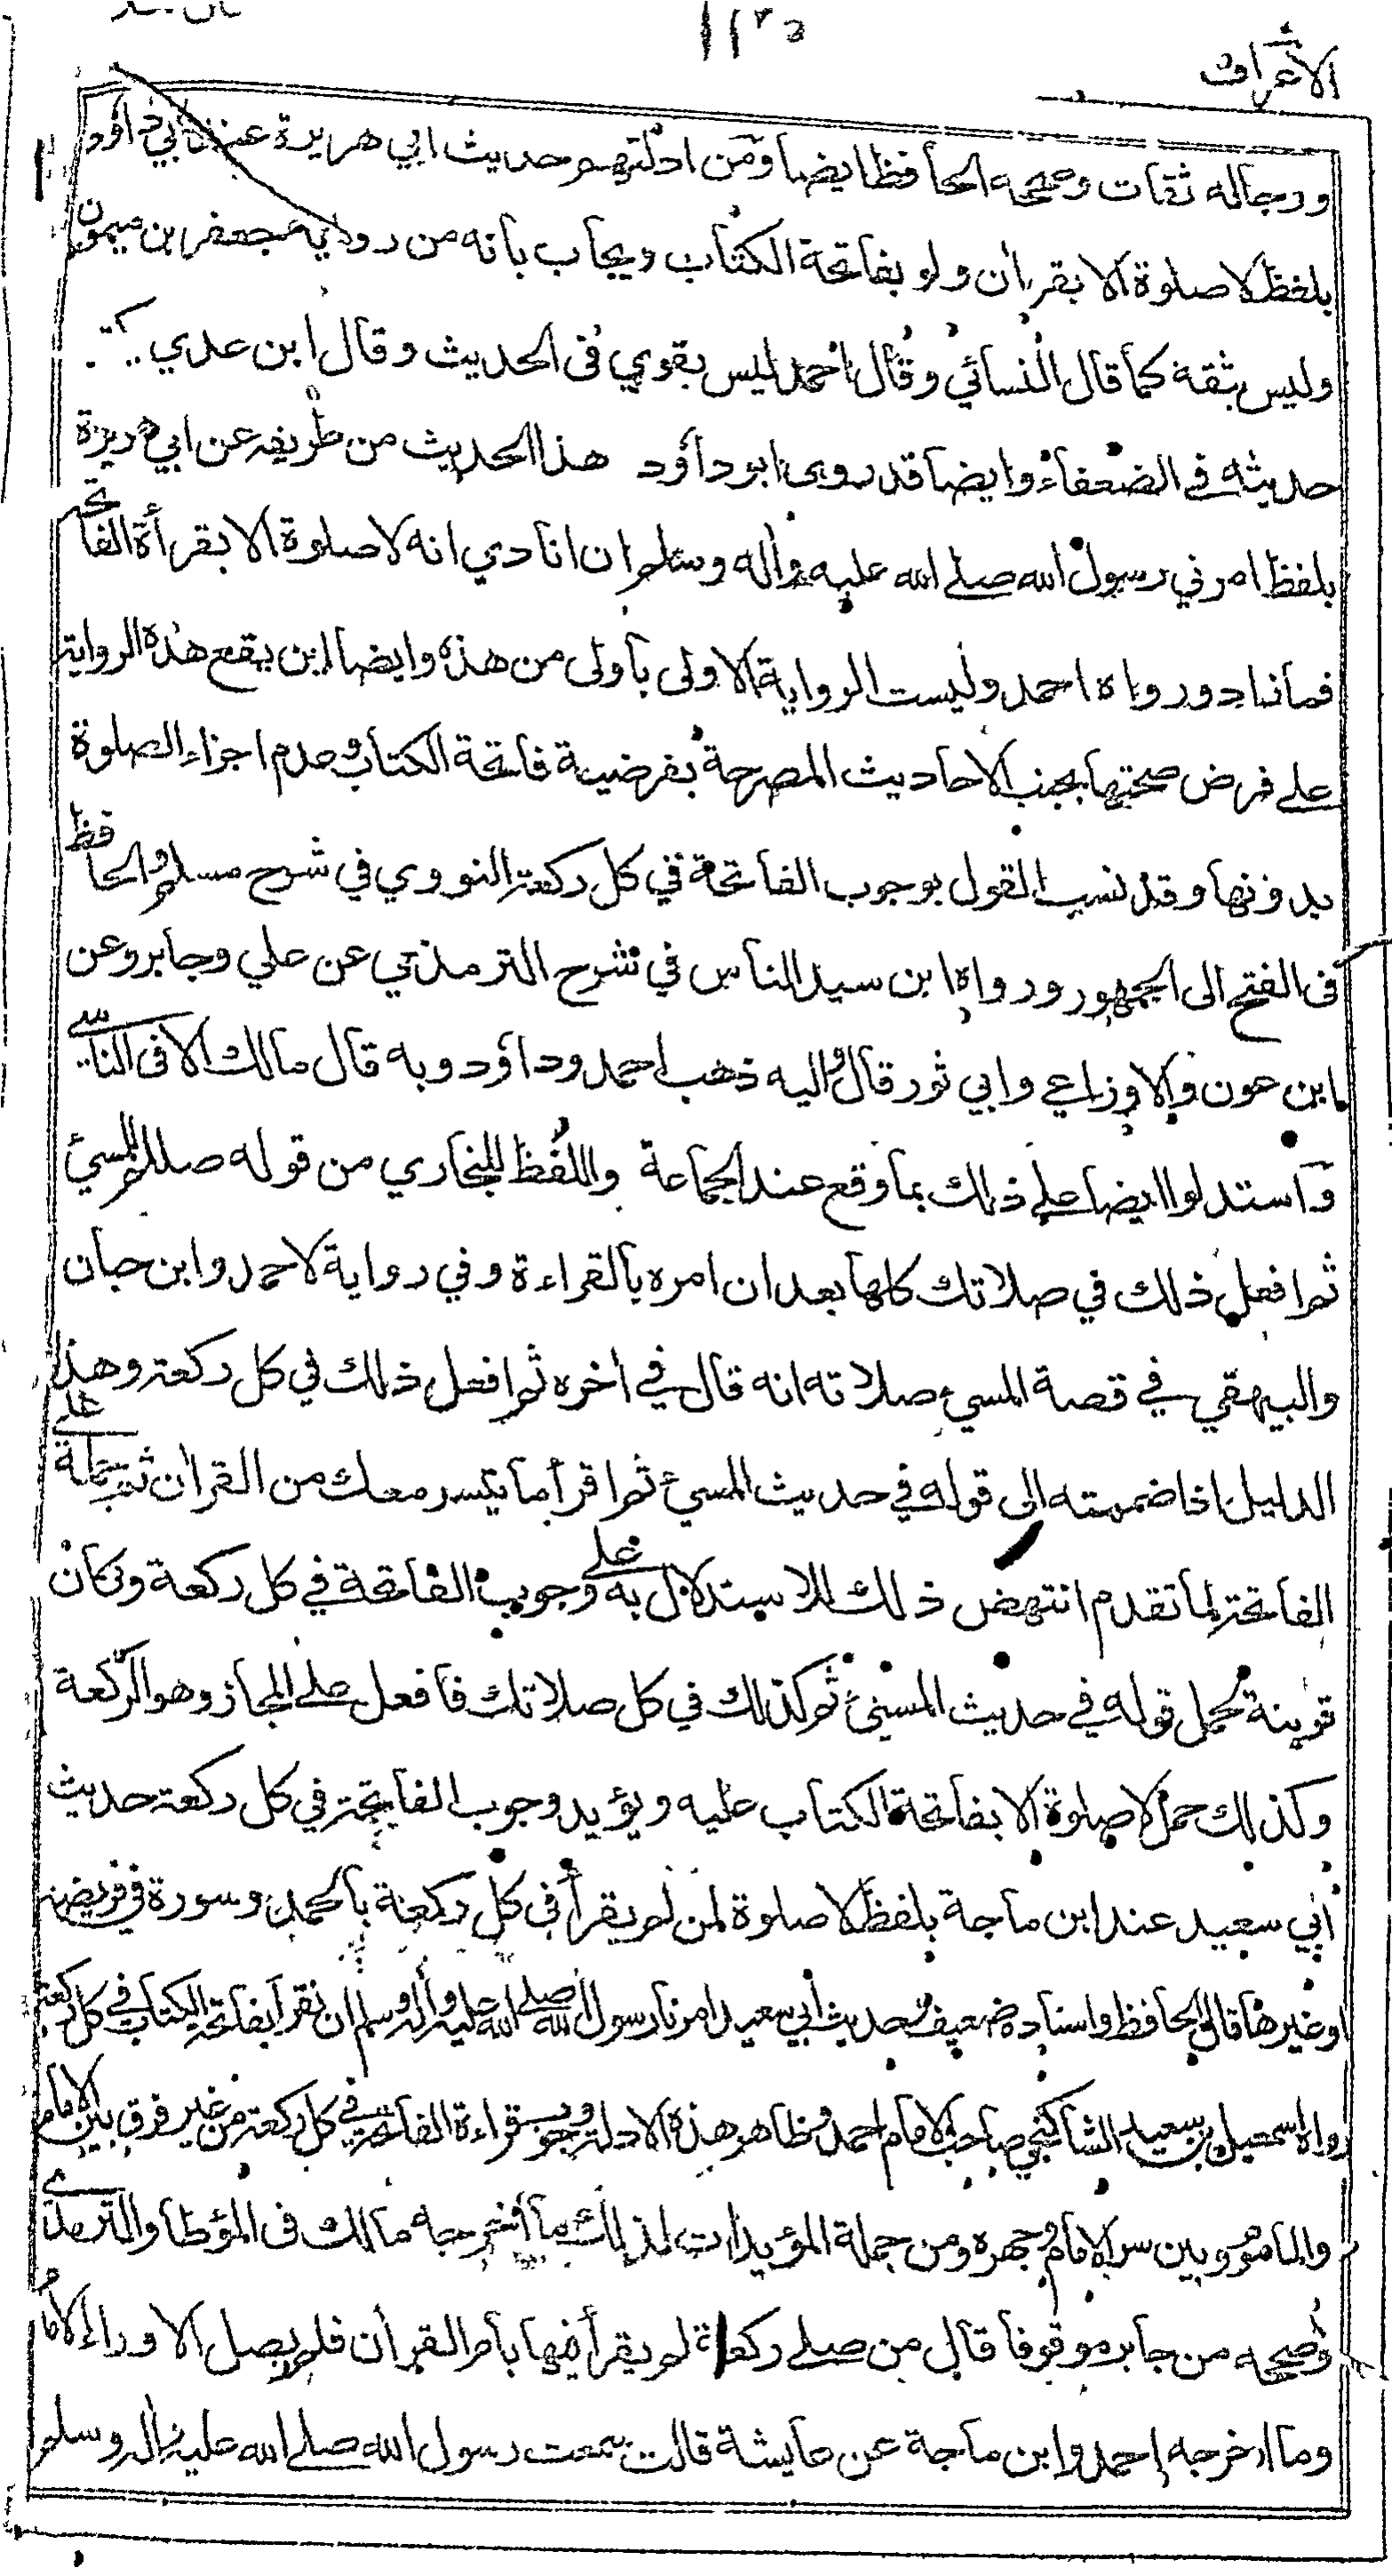 الاعراف
ورجاله ثقات وصححه الحافظ ايضا ومن ادلتهم حديث ابي هريرة عند ابي داؤد
بلفظ لا صلوة الا بقران ولو بفاتحة الكتاب ويجاب بانه من رواية جعفر بن ميمون
وليس بثقة كما قال النسائي وقال احمد ليس بقوي فى الحديث وقال ابن عدي يكتب
حديثه في الضعفاء وايضا قد روى ابو داؤد هذا الحديث من طريقه عن ابي هريرة
بلفظ امرني رسول الله صلے الله عليه واله وسلم ان انادي انه لا صلوة الا بقرأة الفاتحة
فما زاد ورواه احمد وليست الرواية الاولى باولى من هذه وايضا اين يقع هذه الرواية
علے فرض صحتها بجنب الاحاديث المصرحة بفرضية فاتحة الكتاب وعدم اجزاء الصلوة
بدونها وقد نسب القول بوجوب الفاتحة في كل ركعة النووي في شرح مسلم والحافظ
فى الفتح الى الجمهور ورواه ابن سيد الناس في شرح الترمذي عن علي وجابر وعن
ابن عون والاوزاعي وابي ثور قال واليه ذهب احمد وداؤد وبه قال مالك الا فى الناسي
واستدلوا ايضا علے ذلك بما وقع عند الجماعة واللفظ للبخاري من قوله صللم للمسيئ
ثم افعل ذلك في صلاتك كلها بعد ان امره بالقراءة وفي رواية لاحمد وابن حبان
والبيهقي في قصة المسيء صلاته انه قال في اخره ثم افعل ذلك في كل ركعة وهذا
الدليل اذا ضممته الى قوله في حديث المسيئ ثم اقرأ ما تيسر معك من القران ثم حملته على
الفاتحة لما تقدم انتهض ذلك للاستدلال به على وجوب الفاتحة في كل ركعة وكان
قرينة لحمل قوله في حديث المسيئ ثم كذلك في كل صلاتك فافعل علے المجاز وهو الركعة
وكذلك حمل لا صلوة الا بفاتحة الكتاب عليه ويؤيد وجوب الفاتحة في كل ركعة حديث
ابي سعيد عند ابن ماجة بلفظ لا صلوة لمن لم يقرأ فى كل ركعة بالحمد وسورة في فريضة
او غيرها قال الحافظ واسناده ضعيف وحديث ابي سعيد امرنا رسول الله صلے الله عليه واله وسلم ان نقرأ بفاتحة الكتاب في كل ركعة
رواه اسمعيل بن سعيد الشالنجي صاحب الامام احمد وظاهر هذه الادلة وجوب قراءة الفاتحة في كل ركعة من غير فرق بين الامام
والماموم وبين سر الامام وجهره ومن جملة المؤيدات لذلك ما أخرجه مالك فى المؤطا والترمذي
وصححه من جابر موقوفا قال من صلے ركعة لم يقرأ فيها بام القرأن فلم يصل الا وراء الامام
وما اخرجه احمد وابن ماجة عن عايشة قالت سمعت رسول الله صلے الله عليه واله وسلم